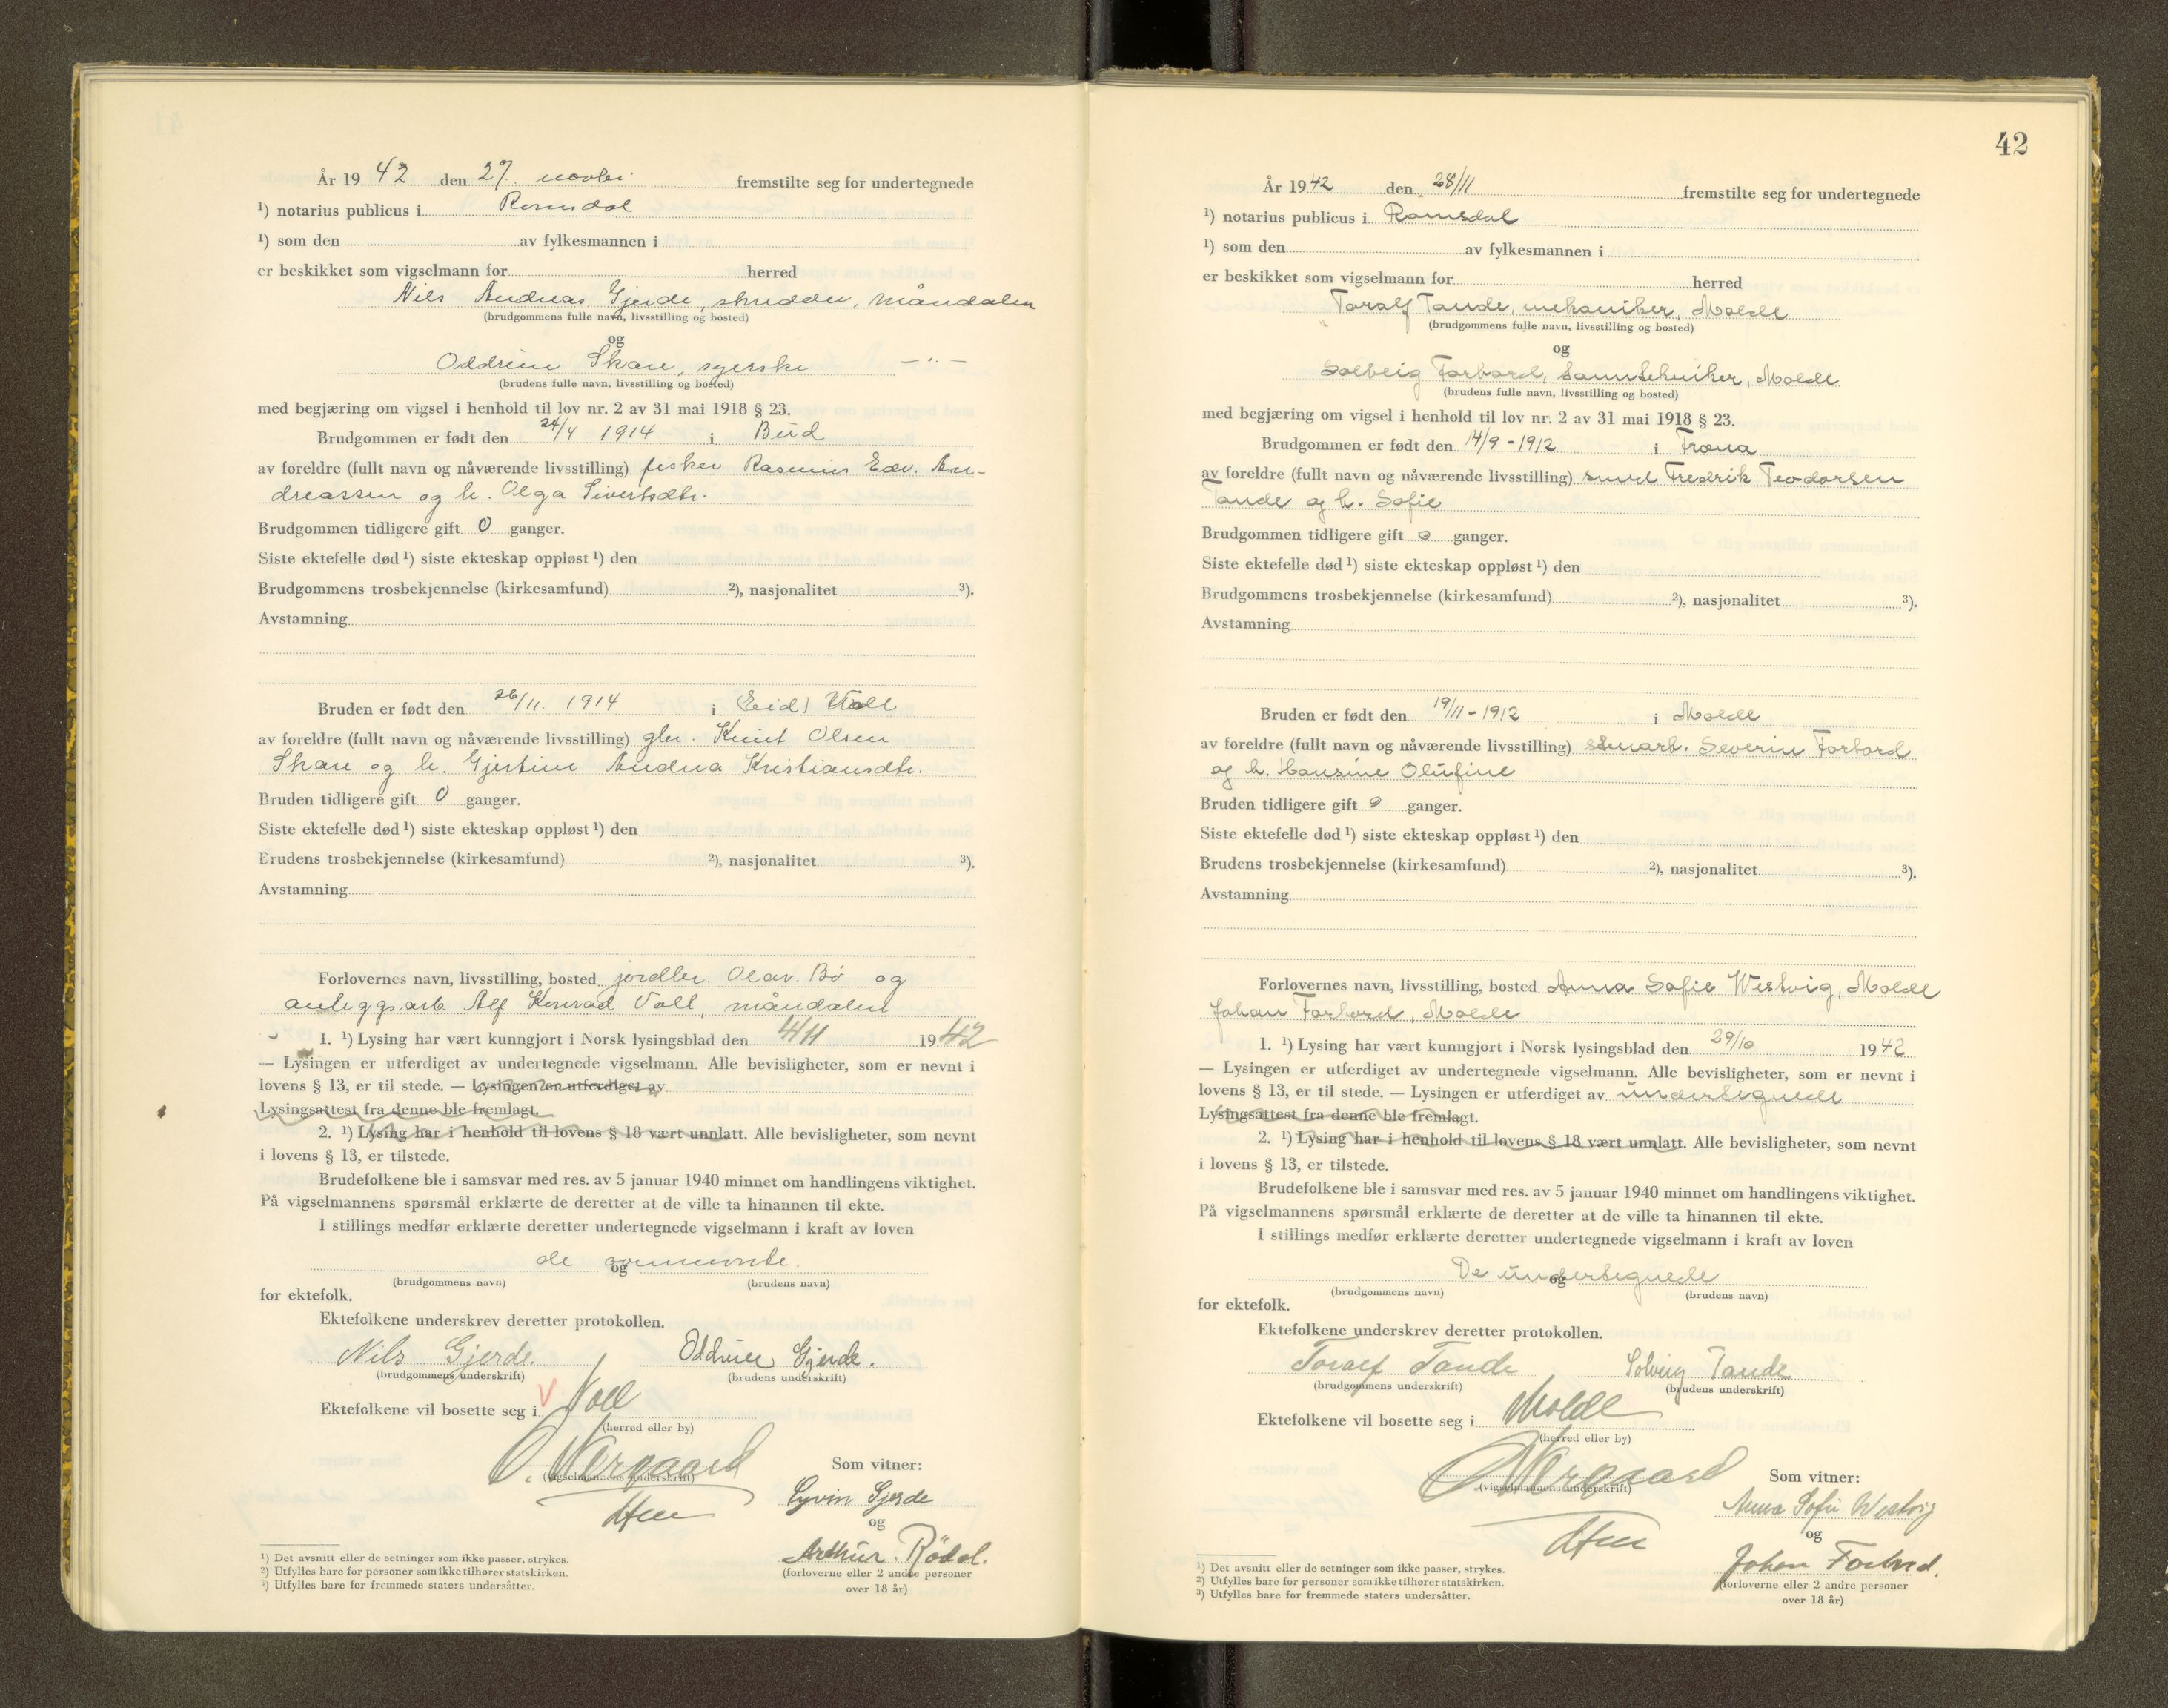 År 1942 den 27. novbr. fremstilte seg for undertegnede
¹) notarius publicus i Romsdal
¹) som den av fylkesmannen i
er beskikket som vigselmann for herred
Nils Andreas Gjerde, skredder, Måndalen
(brudgommens fulle navn, livsstilling og bosted)
og
Oddrun Skare, syerske —"—
(brudens fulle navn, livsstilling og bosted)
med begjæring om vigsel i henhold til lov nr. 2 av 31 mai 1918 § 23.
Brudgommen er født den 24/4 1914 i Bud
av foreldre (fullt navn og nåværende livsstilling) fisker Rasmus Edv. An-
dreassen og h. Olga Sivertsdtr.
Brudgommen tidligere gift 0 ganger.
Siste ektefelle død ¹) siste ekteskap oppløst ¹) den
Brudgommens trosbekjennelse (kirkesamfund) ²), nasjonalitet ³).
Avstamning
Bruden er født den 26/11. 1914 i (Eid) Voll
av foreldre (fullt navn og nåværende livsstilling) gbr. Knut Olsen
Skare og h. Gjertine Andrea Kristiansdtr.
Bruden tidligere gift 0 ganger.
Siste ektefelle død ¹) siste ekteskap oppløst ¹) den
Brudens trosbekjennelse (kirkesamfund) ²), nasjonalitet ³).
Avstamning
Forlovernes navn, livsstilling, bosted jordbr. Olav Bø og
anleggsarb. Alf Konrad Voll, Måndalen
1. ¹) Lysing har vært kunngjort i Norsk lysingsblad den 4/11 1942
— Lysingen er utferdiget av undertegnede vigselmann. Alle bevisligheter, som er nevnt i
lovens § 13, er til stede. — Lysingen er utferdiget av
Lysingsattest fra denne ble fremlagt.
2. ¹) Lysing har i henhold til lovens § 18 vært unnlatt. Alle bevisligheter, som nevnt
i lovens § 13, er tilstede.
Brudefolkene ble i samsvar med res. av 5 januar 1940 minnet om handlingens viktighet.
På vigselmannens spørsmål erklærte de deretter at de ville ta hinannen til ekte.
I stillings medfør erklærte deretter undertegnede vigselmann i kraft av loven
de ovennevnte.
og
(brudgommens navn) (brudens navn)
for ektefolk.
Ektefolkene underskrev deretter protokollen.
Nils Gjerde. Oddrun Gjerde.
(brudgommens underskrift) (brudens underskrift)
Ektefolkene vil bosette seg i V Voll
(herred eller by)
O. Nergaard
(vigselmannens underskrift)
Som vitner:
Gjerde
og
Arthur. Rödal.
(forloverne eller 2 andre personer
over 18 år)
¹) Det avsnitt eller de setninger som ikke passer, strykes.
²) Utfylles bare for personer som ikke tilhører statskirken.
³) Utfylles bare for fremmede staters undersåtter.
42
År 1942 den 28/11 fremstilte seg for undertegnede
¹) notarius publicus i Romsdal
¹) som den av fylkesmannen i
er beskikket som vigselmann for herred
Toralf Tande, mekaniker, Molde
(brudgommens fulle navn, livsstilling og bosted)
og
Solveig Forbord, tanntekniker, Molde
(brudens fulle navn, livsstilling og bosted)
med begjæring om vigsel i henhold til lov nr. 2 av 31 mai 1918 § 23.
Brudgommen er født den 14/9 - 1912 i Fræna
av foreldre (fullt navn og nåværende livsstilling) smed Fredrik Teodorsen
Tande og h. Sofie
Brudgommen tidligere gift 0 ganger.
Siste ektefelle død ¹) siste ekteskap oppløst ¹) den
Brudgommens trosbekjennelse (kirkesamfund) ²), nasjonalitet ³).
Avstamning
Bruden er født den 19/11 - 1912 i Molde
av foreldre (fullt navn og nåværende livsstilling) Severin Forbord
og h. Hansine Olufine
Bruden tidligere gift 0 ganger.
Siste ektefelle død ¹) siste ekteskap oppløst ¹) den
Brudens trosbekjennelse (kirkesamfund) ²), nasjonalitet ³).
Avstamning
Forlovernes navn, livsstilling, bosted Anna Sofie Westvig, Molde
Johan Forbord, Molde
1. ¹) Lysing har vært kunngjort i Norsk lysingsblad den 29/10 1942
— Lysingen er utferdiget av undertegnede vigselmann. Alle bevisligheter, som er nevnt i
lovens § 13, er til stede. — Lysingen er utferdiget av undertegnede
Lysingsattest fra denne ble fremlagt.
2. ¹) Lysing har i henhold til lovens § 18 vært unnlatt. Alle bevisligheter, som nevnt
i lovens § 13, er tilstede.
Brudefolkene ble i samsvar med res. av 5 januar 1940 minnet om handlingens viktighet.
På vigselmannens spørsmål erklærte de deretter at de ville ta hinannen til ekte.
I stillings medfør erklærte deretter undertegnede vigselmann i kraft av loven
De undertegnede
og
(brudgommens navn) (brudens navn)
for ektefolk.
Ektefolkene underskrev deretter protokollen.
Toralf Tande Solveig Tande
(brudgommens underskrift) (brudens underskrift)
Ektefolkene vil bosette seg i Molde
(herred eller by)
O Nergaard
(vigselmannens underskrift)
Som vitner:
Anna Sofie Westvig
og
Johan Forbord.
(forloverne eller 2 andre personer
over 18 år)
¹) Det avsnitt eller de setninger som ikke passer, strykes.
²) Utfylles bare for personer som ikke tilhører statskirken.
³) Utfylles bare for fremmede staters undersåtter.